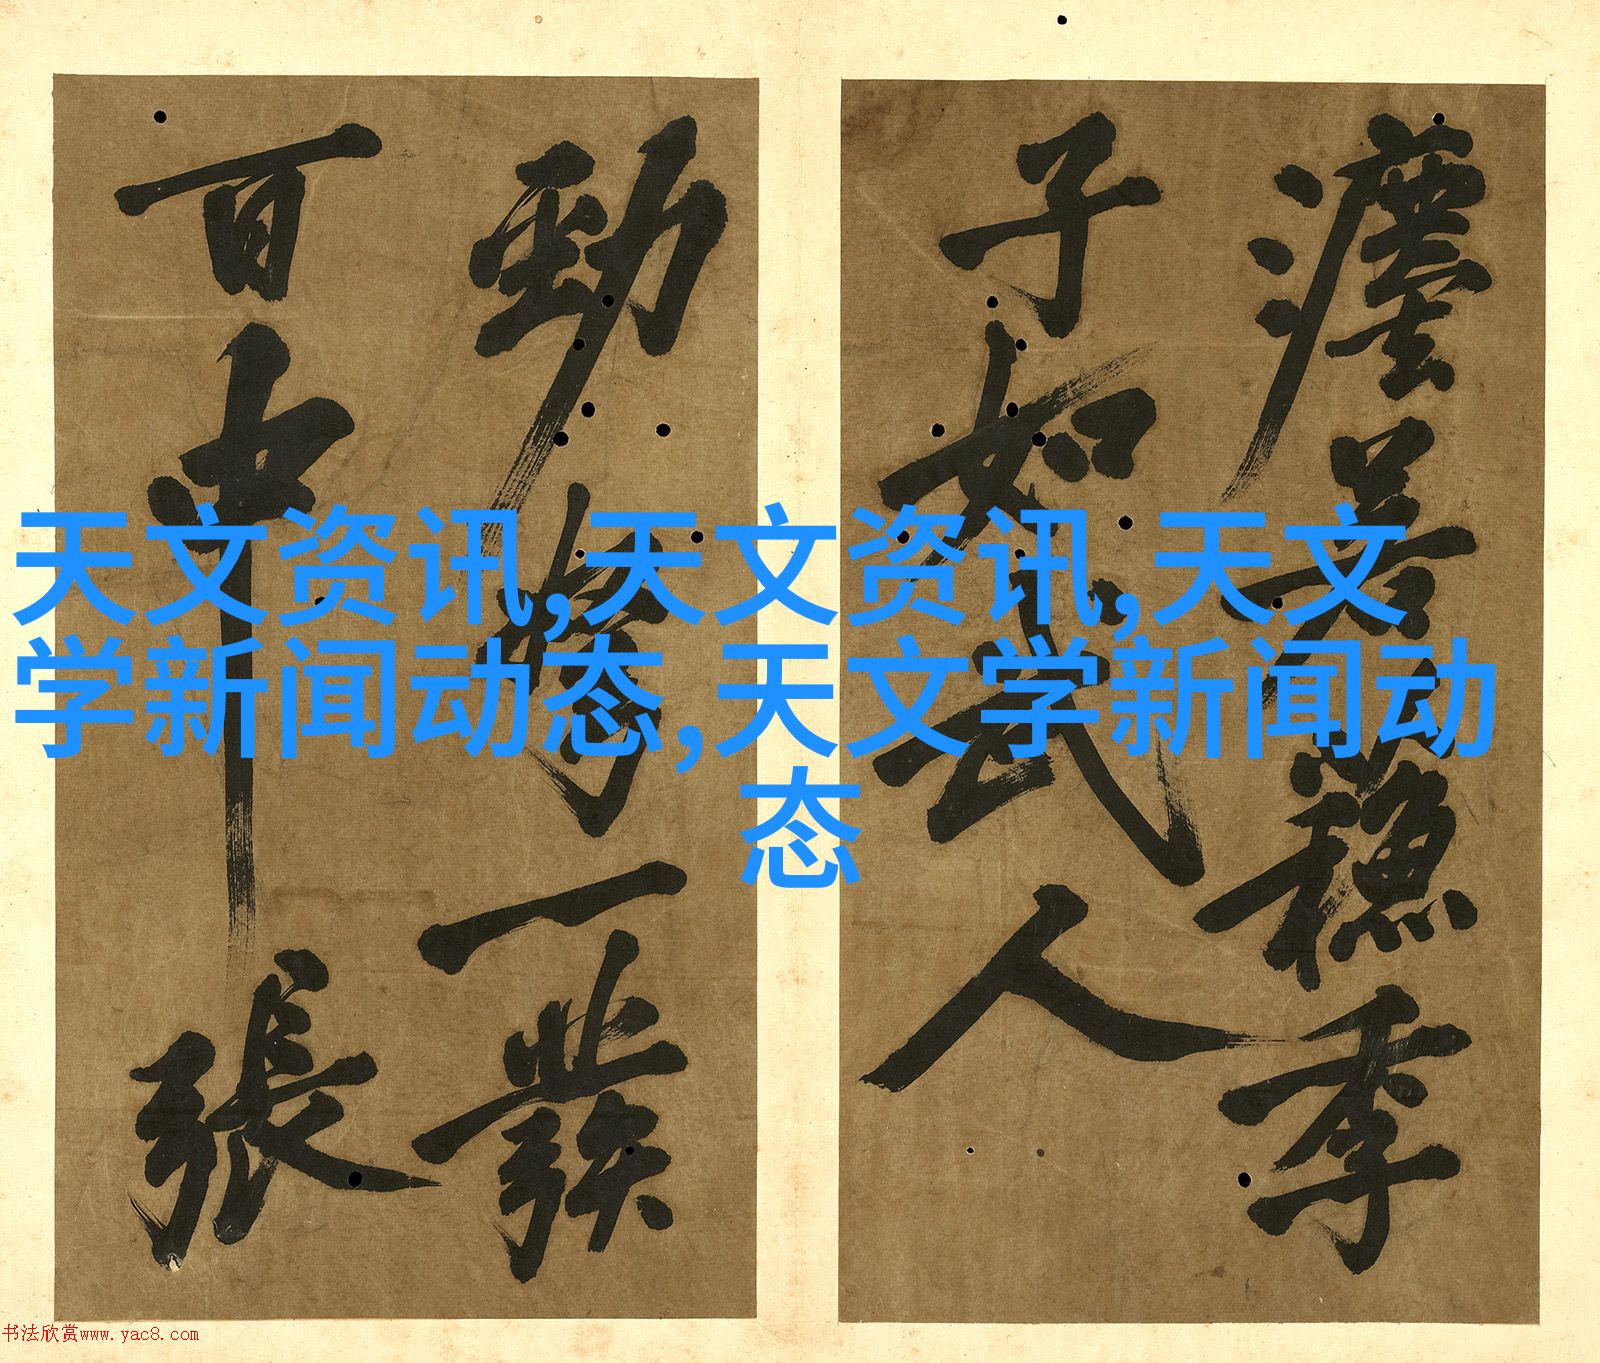 天文资讯,天文资讯,天文
学新闻动态,天文学新闻动
态
季
子如武人
勁弩一發
百中張
书法欣赏www.yac8.com